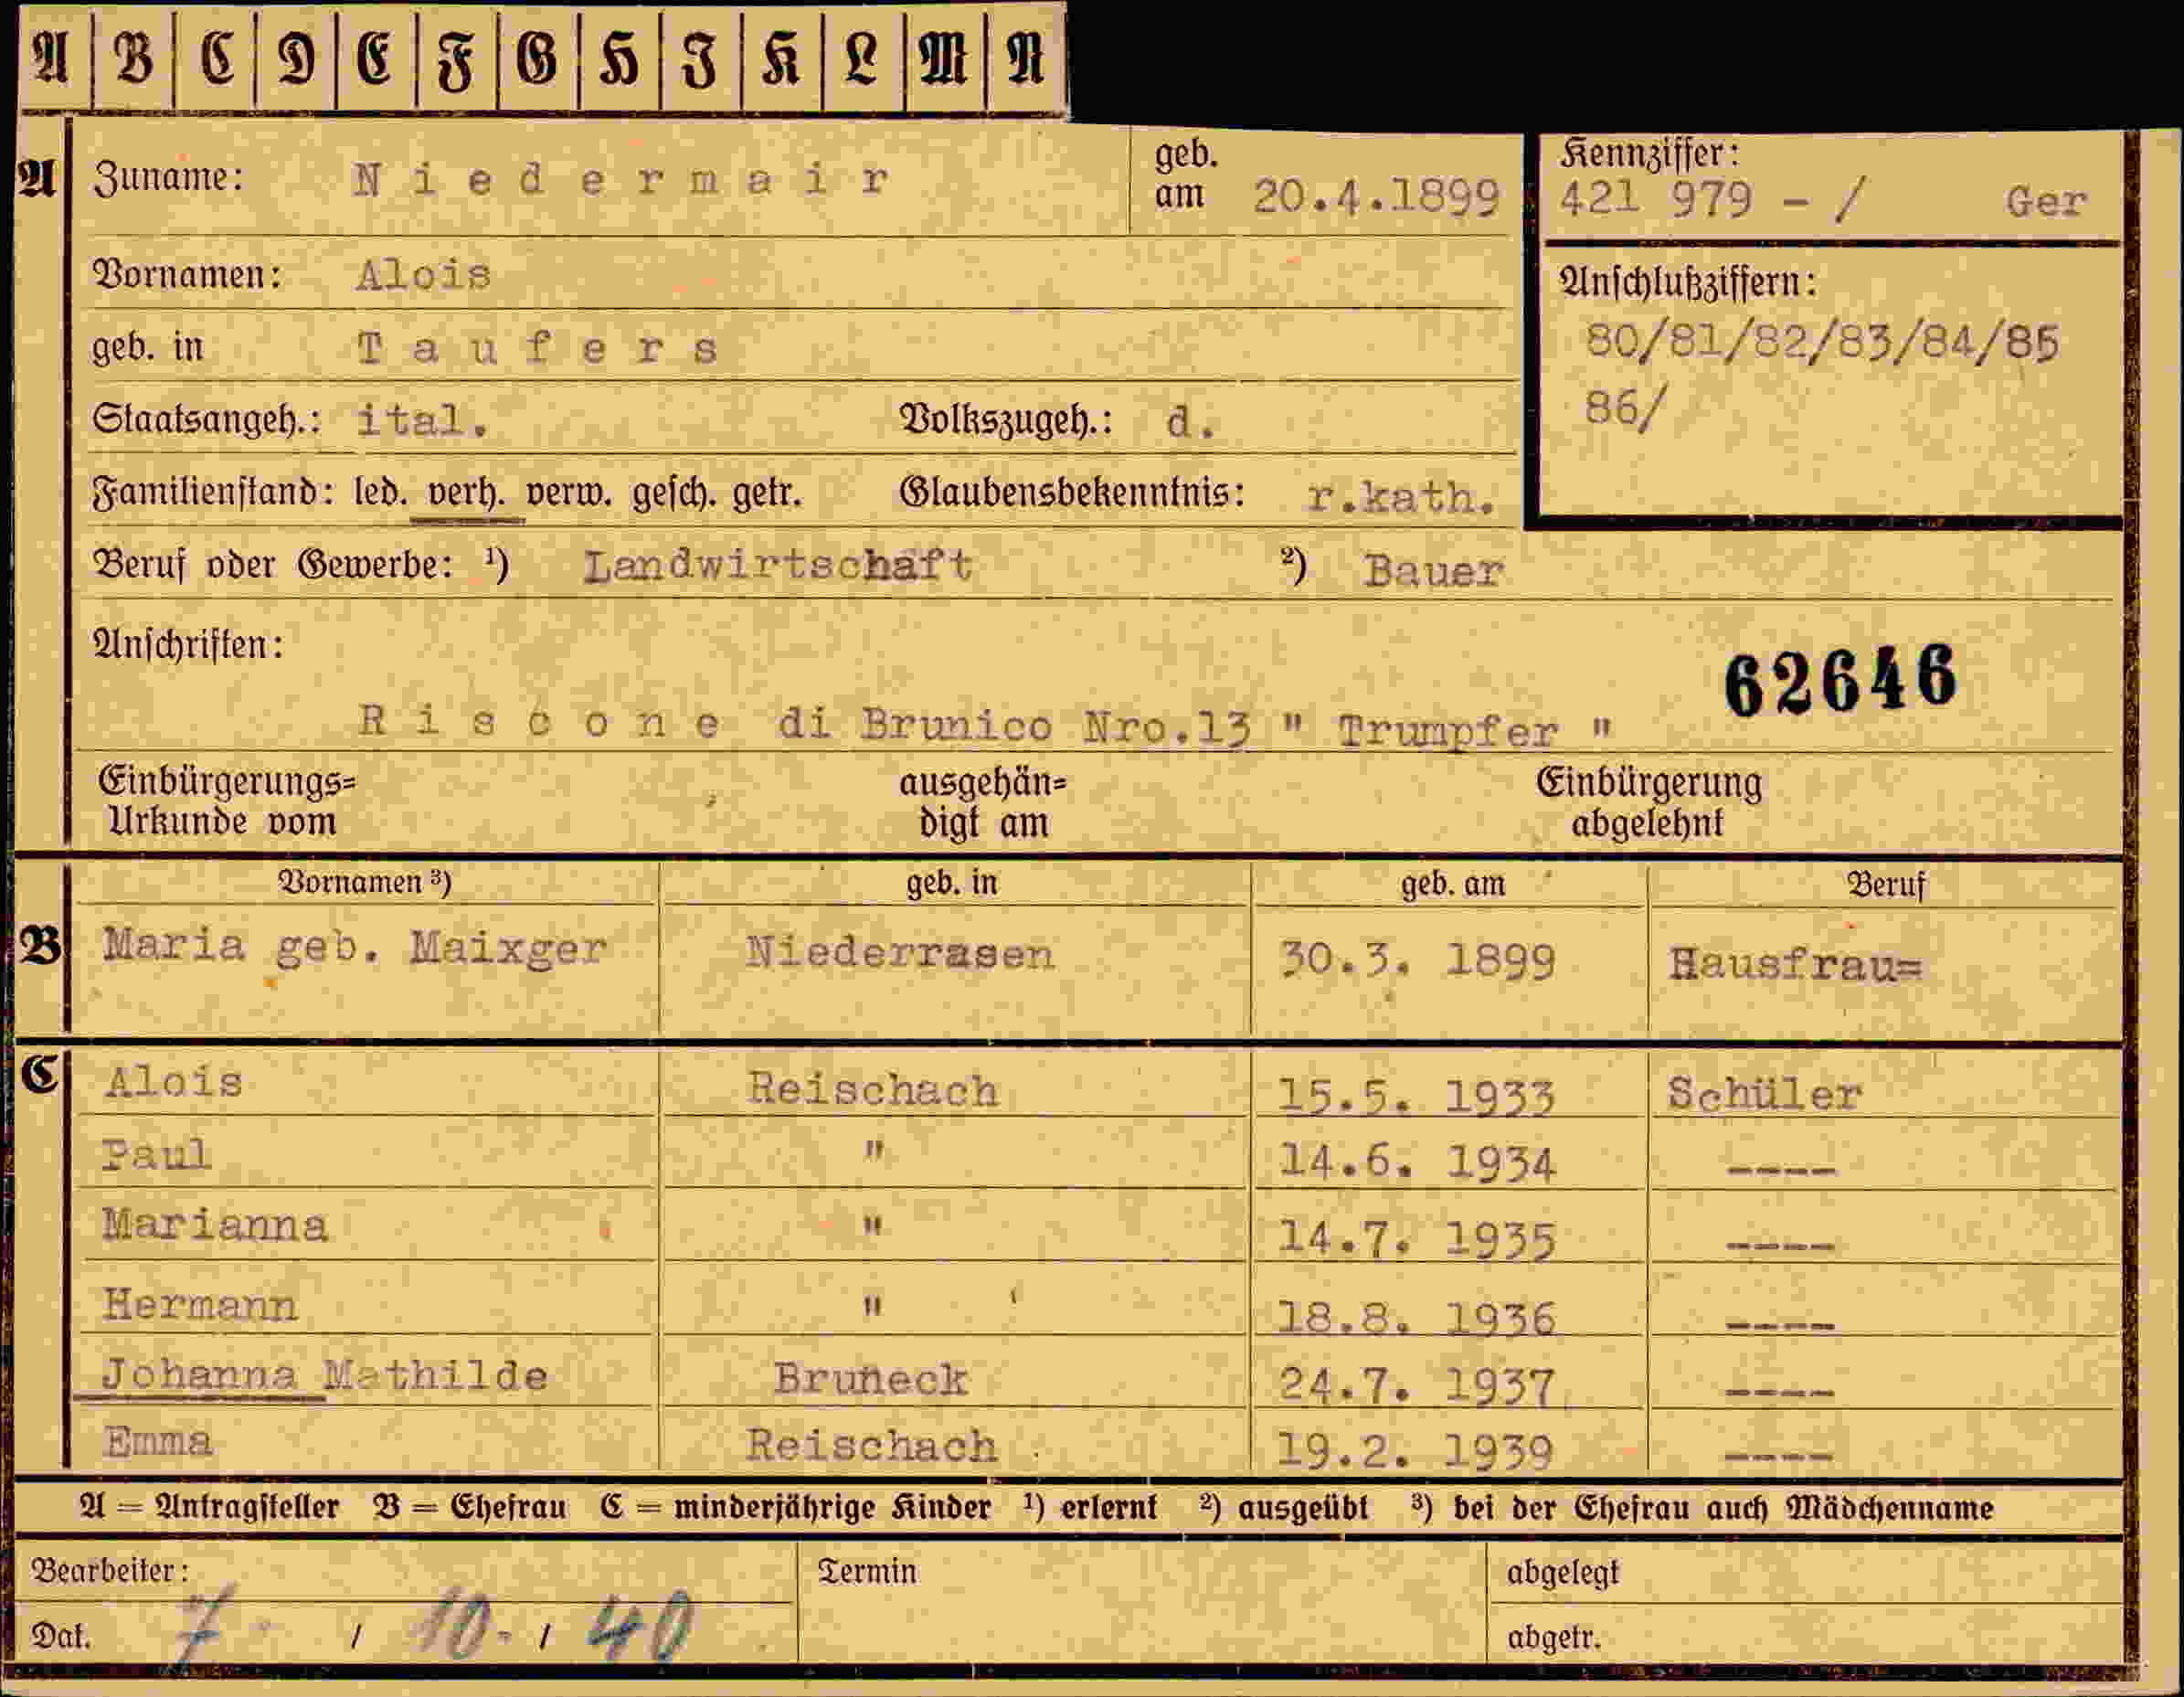 A B C D E F G H I K L M N
A Zuname: Niedermair geb. am 20.4.1899 Kennziffer: 421 979 - / Ger
Vornamen: Alois Anschlußziffern:
geb. in Taufers 80/81/82/83/84/85
Staatsangeh.: ital. Volkszugeh.: d. 86/
Familienstand: led. verh. verw. gesch. getr. Glaubensbekenntnis: r.kath.
Beruf oder Gewerbe: ¹) Landwirtschaft ²) Bauer
Anschriften: 62646
Riscone di Brunico Nro.13 " Trumpfer "
Einbürgerungs= ausgehän= Einbürgerung
Urkunde vom digt am abgelehnt
Vornamen ³) geb. in geb. am Beruf
B Maria geb. Maixger Niederrasen 30.3. 1899 Hausfrau=
C Alois Reischach 15.5. 1933 Schüler
Paul " 14.6. 1934 ----
Marianna " 14.7. 1935 ----
Hermann " 18.8. 1936 ----
Johanna Mathilde Bruneck 24.7. 1937 ----
Emma Reischach 19.2. 1939 ----
A = Antragsteller B = Ehefrau C = minderjährige Kinder ¹) erlernt ²) ausgeübt ³) bei der Ehefrau auch Mädchenname
Bearbeiter: Termin abgelegt
Dat. 7 / 10 - / 40 abgetr.